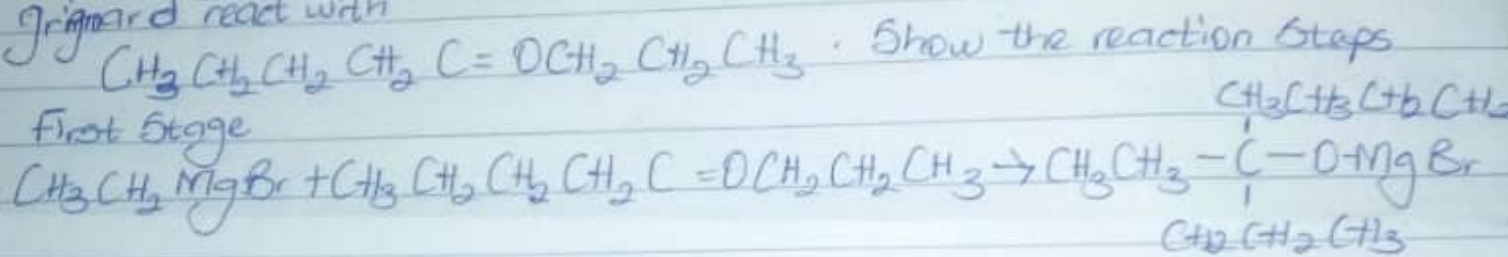 Grignard react with
CH₃ CH₂ CH₂ CH₂ C = OCH₂ CH₂ CH₃ . Show the reaction Steps
First Stage
CH₃CH₃CH₂CH₂
CH₃ CH₂ MgBr + CH₃ CH₂ CH₂ CH₂ C = OCH₂ CH₂ CH₃ → CH₃CH₃ – C – O-Mg Br
CH₂ CH₂ CH₃